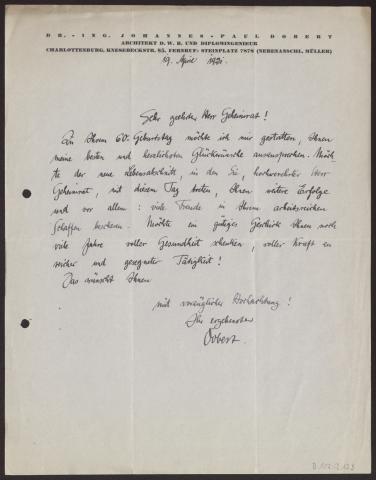 DR. - ING. JOHANNES - PAUL DOBERT
ARCHITEKT D. W. B. UND DIPLOMINGENIEUR
CHARLOTTENBURG, KNESEBECKSTR. 85. FERNRUF: STEINPLATZ 7878 (NEBENANSCHL. MÜLLER)
19. April
Sehr geehrter Herr Geheimrat!
Zu Ihrem 60. Geburtstag möchte ich mir gestatten, Ihnen
meine besten und herzlichsten Glückwünsche auszusprechen. Möch
te der neue Lebensabschnitt, in den Sie, hochverehrter Herr
Geheimrat, mit diesem Tag treten, Ihnen weitere Erfolge
und vor allem: viele Freude in Ihrem arbeitsreichen
Schaffen bescheren. Möchte ein gütiges Geschick Ihnen noch
viele Jahre voller Gesundheit schenken, voller Kraft zu
reicher und gesegneter Tätigkeit!
Das wünscht Ihnen
mit vorzüglicher Hochachtung!
Ihr ergebenster
Dobert.